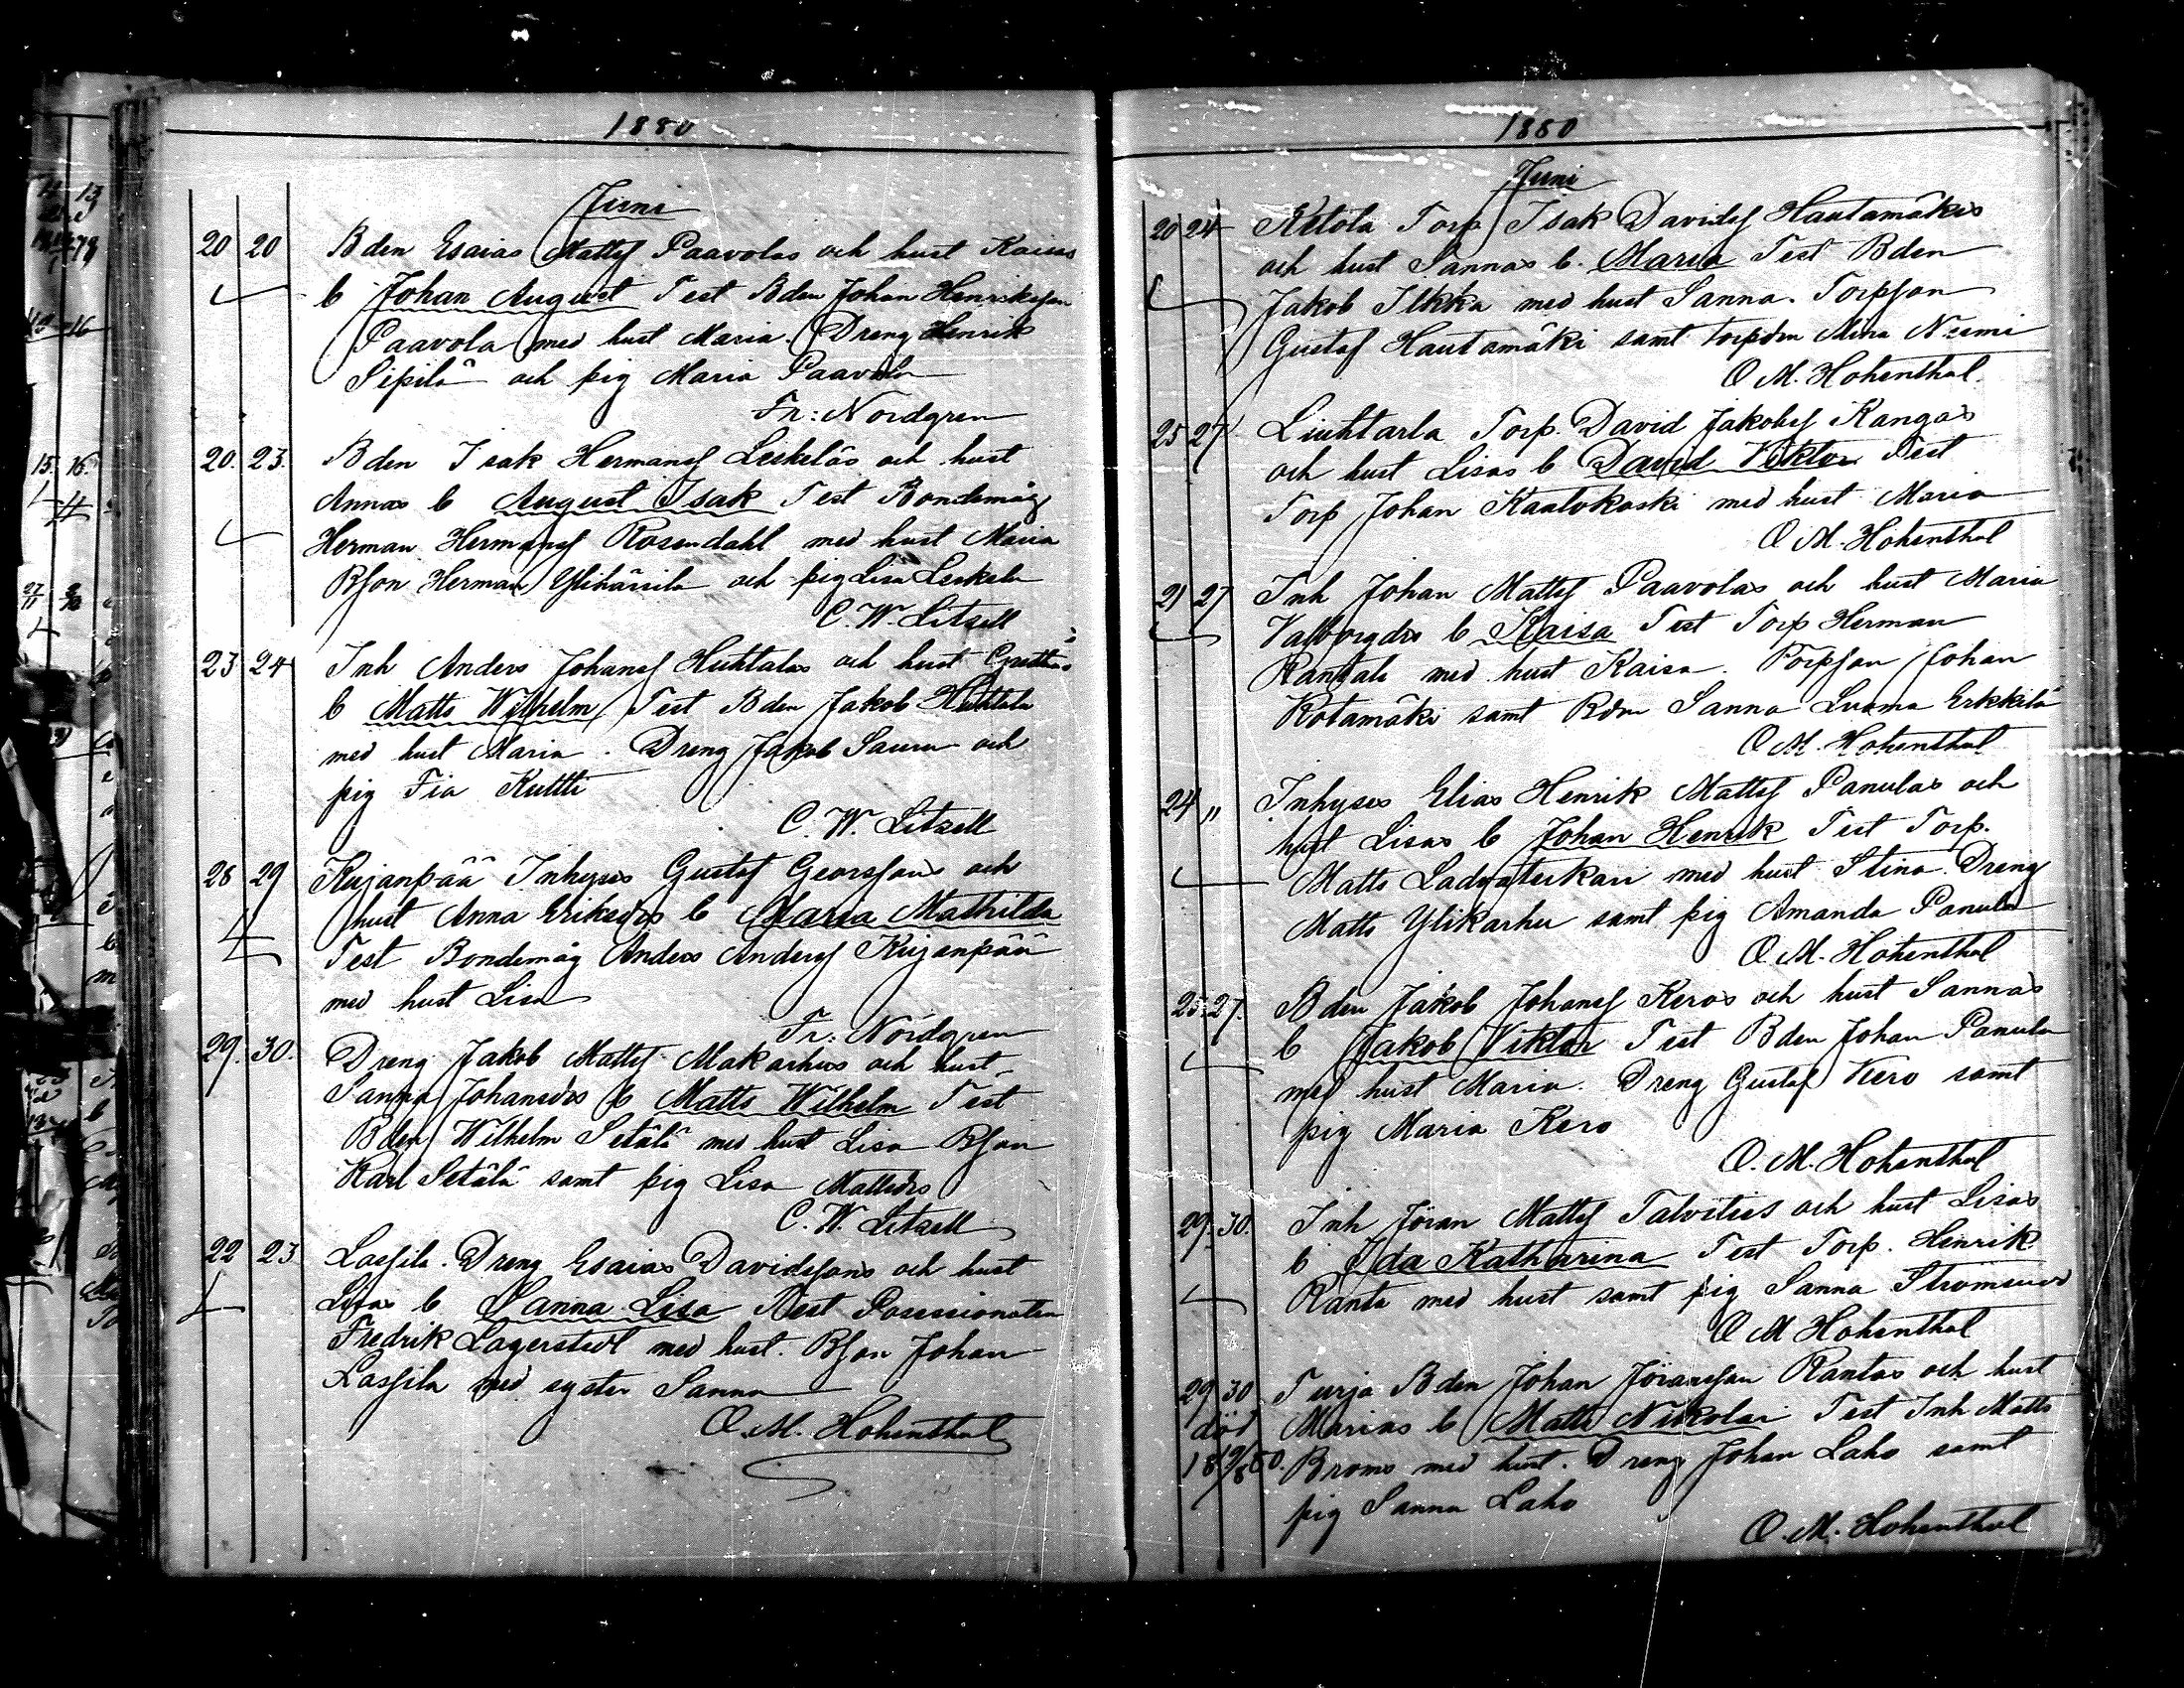 1880
Juni
20 20 Bden Esaias Mattsf Paavolas och hust Kaisas
b Johan August Test Bden Johan Henriksson
Paavola med hust Maria. Dreng Henrik
Sipilä och pig Maria Paavola
Fr: Nordgren
20. 23. Bden Isak Hermansf Leskeläs och hust
Annas b August Isak Test Bondemåg
Herman Hermansf Rosendahl med hust Maria
Bson Herman Ylihärsilä och pig Lisa Leskelä
C. W. Litzell
23 24 Inh Anders Johansf Huhtalas och hust Grettas
b Matts Wilhelm Test Bden Jakob Huhtala
med hust Maria. Dreng Jakob Sauru och
pig Fia Kultti
C. W. Litzell
28 29 Kujanpää Inhyses Gustaf Georgsons och
hust Anna Eriksdrs b Maria Mathilda
Test Bondemåg Anders Andersf Kujanpää
med hust Lisa
Fr: Nordgren
29. 30. Dreng Jakob Mattsf Makarhus och hust
Sanna Johansdrs b Matts Wilhelm Test
Bden Wilhelm Setälä med hust Lisa Bson
Karl Setälä samt pig Lisa Mattsdrs
C. W. Litzell
22 23 Lassila. Dreng Esaias Davidssons och hust
Lisas b Sanna Lisa Test Possessionaten
Fredrik Lagerstedt med hust. Bson Johan
Lassila med syster Sanna
O. M. Hohenthal
1880
Juni
20 24 Ketola Torp Isak Davidsf Hautamäkis
och hust Sannas b. Maria Test Bden
Jakob Ilkka med hust Sanna. Torpson
Gustaf Hautamäki samt torpdrn Mina Niemi
O M. Hohenthal.
25 27 Liuhtarla Torp. David Jakobsf Kangas
och hust Lisas b David Viktor Test
Torp Johan Kantokoski med hust Maria
O. M. Hohenthal
21 27 Inh Johan Mattsf Paavolas och hust Maria
Valborgdrs b Kaisa Test Torp Herman
Rantala med hust Kaisa. Torpson Johan
Kotamäki samt Bdrn Sanna Luoma Erkkilä
O. M. Hohenthal
24 " Inhyses Elias Henrik Mattsf Panulas och
hust Lisas b Johan Henrik Test Torp.
Matts med hust Stina. Dreng
Matts Ylikarhu samt pig Amanda Panula
O. M. Hohenthal
25. 27. Bden Jakob Johansf Keros och hust Sannas
b Jakob Viktor Test Bden Johan Panula
med hust Maria. Dreng Gustaf Kero samt
pig Maria Kero
O. M. Hohenthal
29. 30. Inh Jöran Mattsf Talvities och hust Lisas
b Ida Katharina Test Torp. Henrik
Ranta med hust samt pig Sanna
O M Hohenthal
29 30 Turja Bden Johan Jöransson Rantas och hust
död Marias b Matts Nikolai Test Inh Matts
Broms med hust. Dreng Johan Laho samt
pig Sanna Laho
O. M. Hohenthal